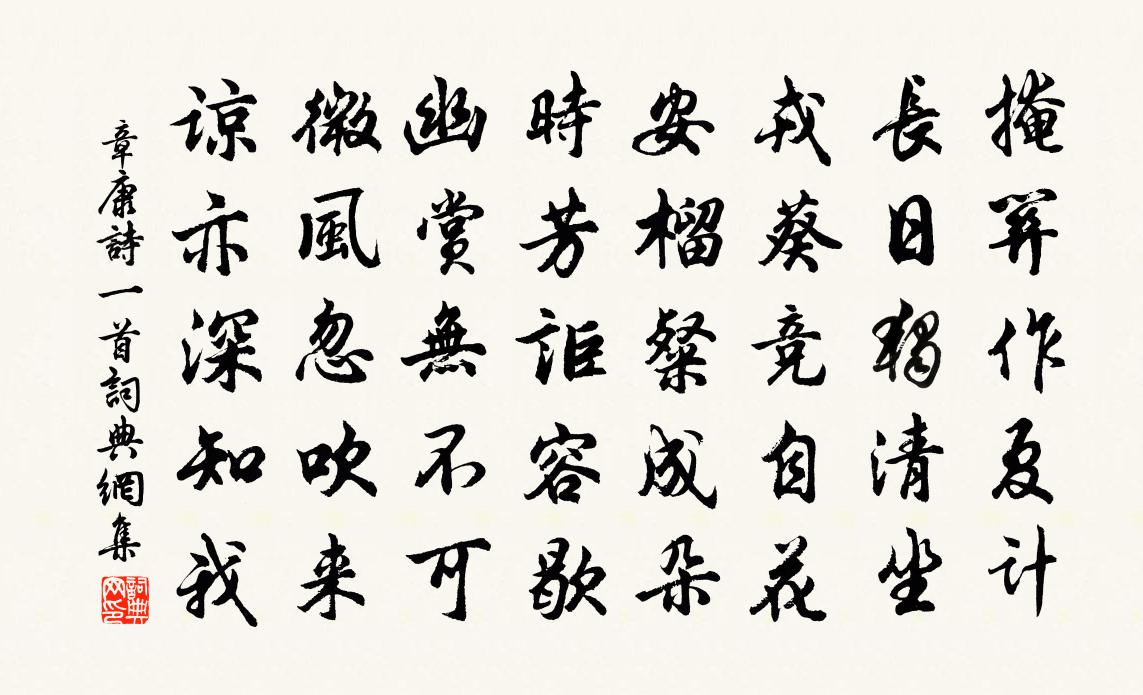 掩關作夏計
長日獨清坐
戎葵競自花
安榴粲成朵
時芳詎容歇
幽賞無不可
微風忽吹来
諒亦深知我
章康詩一首詞典網集
詞典網印